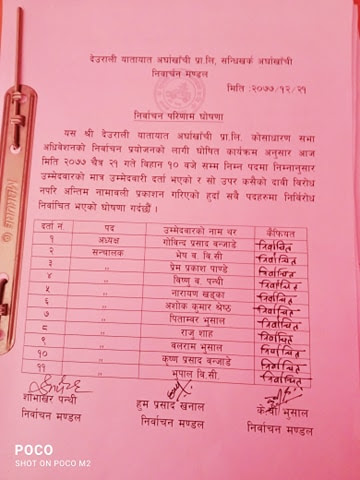 देउराली यातायात अर्घाखाँची प्रा.लि, सन्धिखर्क अर्घाखाँची
निवार्चन मण्डल
मिति :२०७७/१२/२१
निर्वाचन परिणाम घोषणा
यस श्री देउराली यातायात अर्घाखाँची प्रा.लि. कोसाधारण सभा
अधिवेशनको निर्वाचन प्रयोजनको लागी घोषित कार्यक्रम अनुसार आज
मिति २०७७ चैत्र २१ गते विहान १० बजे सम्म निम्न पदमा निम्नानुसार
उम्मेदवारको मात्र उम्मेदवारी दर्ता भएको र सो उपर कसैको दावी विरोध
नपरि अन्तिम नामावली प्रकाशन गरिएको हुदाँ सवै पदहरुमा निर्विरोध
निर्वाचित भएको घोषणा गर्दछौं ।
दर्ता न. पद उम्मेदवारको नाम थर कैफियत
१ अध्यक्ष गोविन्द प्रसाद वन्जाडे निर्वाचित
२ सन्चालक भेष ब. वि.सी निर्वाचित
३ ,, प्रेम प्रकाश पाण्डे निर्वाचित
४ ,, विष्णु ब. पन्थी निर्वाचित
५ ,, नारायण खड्का निर्वाचित
६ ,, अशोक कुमार श्रेष्ठ निर्वाचित
७ ,, पिताम्वर भुसाल निर्वाचित
८ ,, राजु शाह निर्वाचित
९ ,, वलराम भुसाल निर्वाचित
१० ,, कृष्ण प्रसाद वन्जाडे निर्वाचित
११ ,, भुपाल वि.सी. निर्वाचित
शोभाखर पन्थी हुम प्रसाद खनाल के.पी भुसाल
निर्वाचन मण्डल निर्वाचन मण्डल निर्वाचन मण्डल
POCO
SHOT ON POCO M2